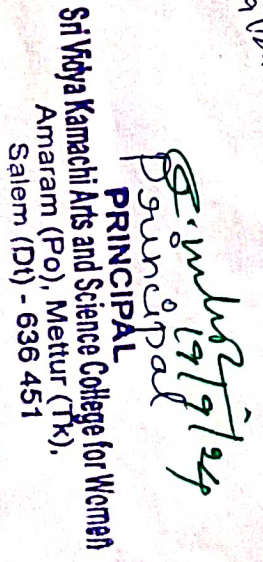 19/9/24
Principal
PRINCIPAL
Sri Vidya Kamachi Arts and Science College for Women
Amaram (Po), Mettur (Tk),
Salem (Dt) - 636 451